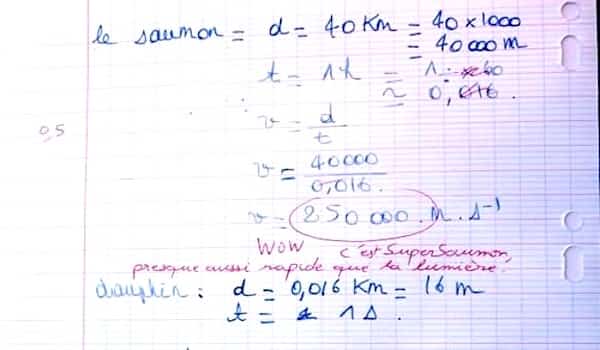 le saumon = d = 40 Km = 40 x 1000
= 40 000 m
t = 1h = 1 : 60
≈ 0,016.
v = d/t
0,5
v = 40000/0,016.
v = 250 000. m.s⁻¹
Wow c'est SuperSaumon,
presque aussi rapide que la lumière.
dauphin : d = 0,016 Km = 16 m
t = 1s.